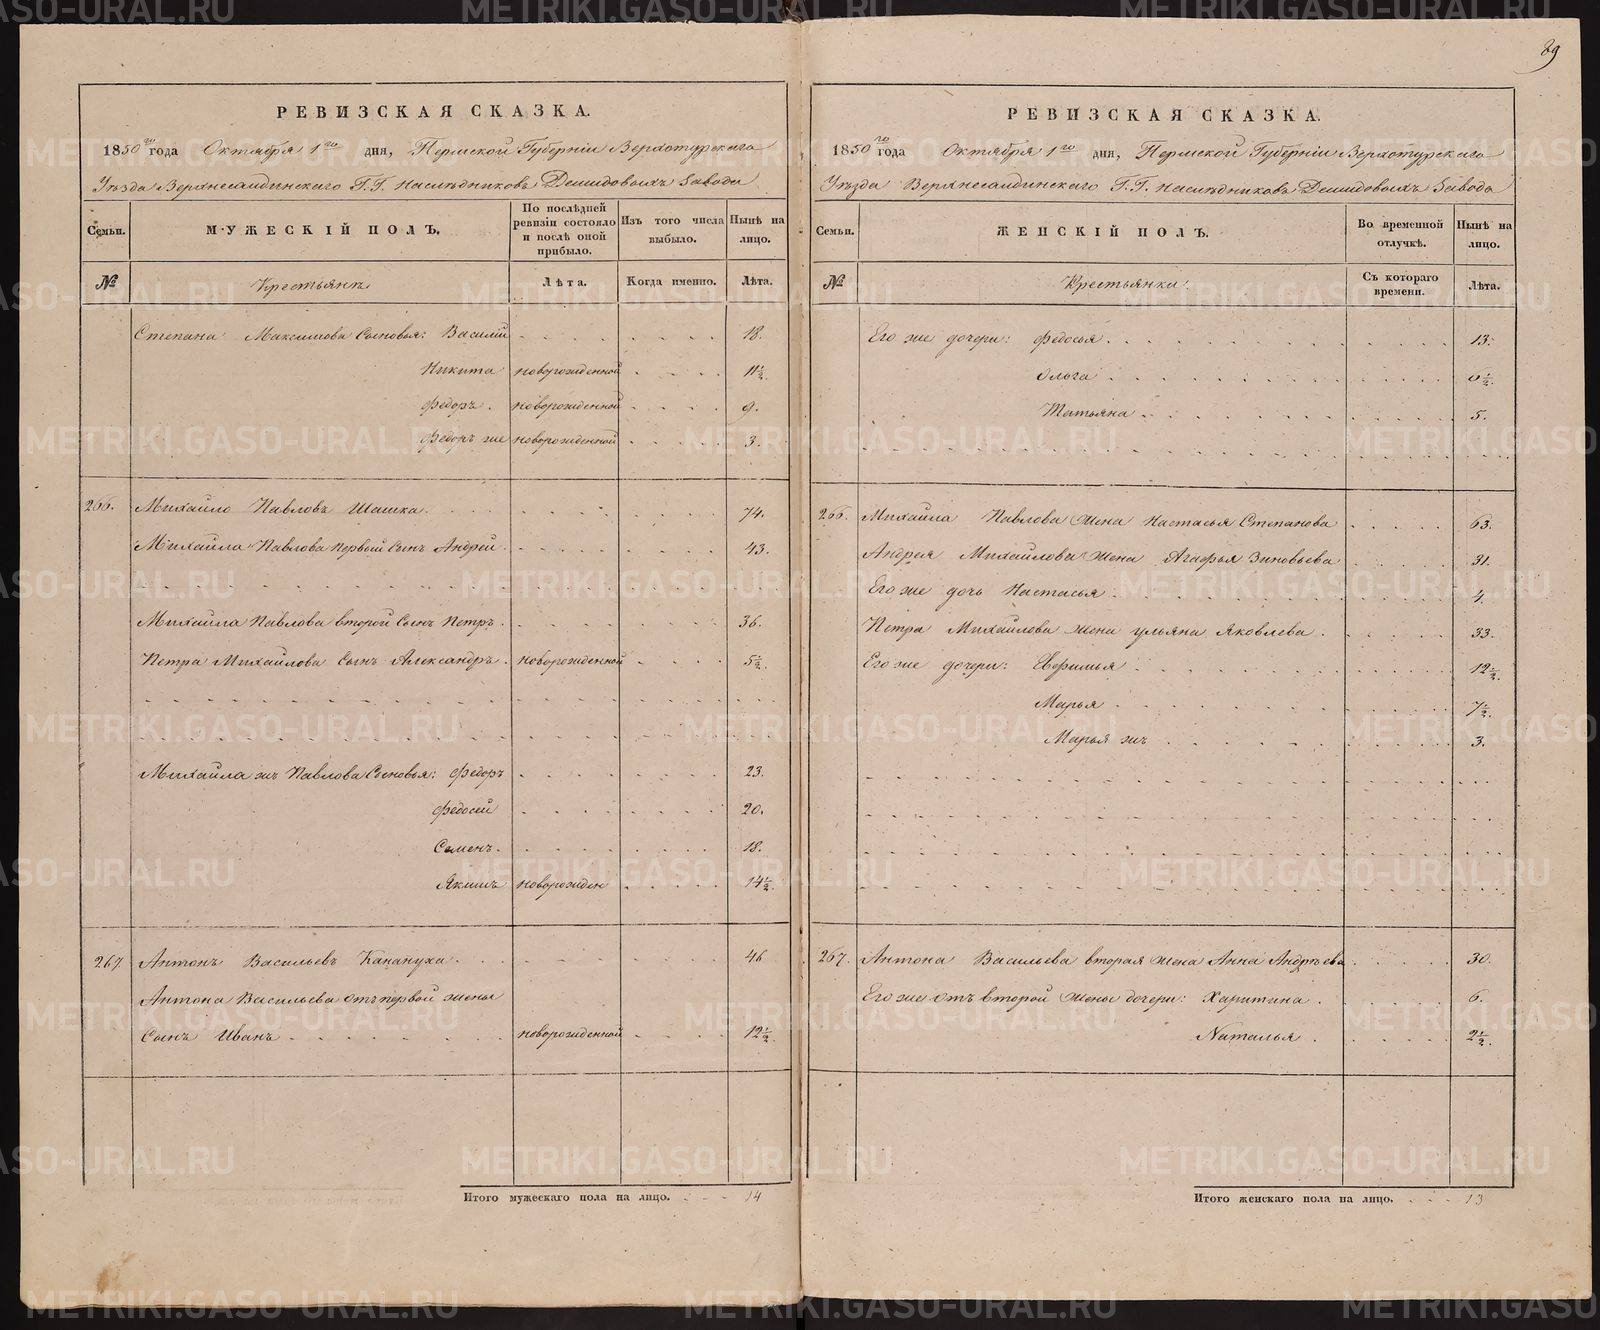 89
РЕВИЗСКАЯ СКАЗКА.
1850го года Октября 1го дня, Пермской Губернiи Верхотурскаго
Уѣзда Верхнесалдинскаго Г.Г. Наслѣдниковъ Демидовыхъ Завода
Семьи.
МУЖЕСКIЙ ПОЛЪ.
По послѣдней ревизiи состояло и послѣ оной прибыло.
Изъ того числа выбыло.
Нынѣ на лицо.
№
Крестьянъ
Лѣта.
Когда именно.
Лѣта.
Степана Максимова Сыновья: Василiй 18.
Никита новорожденной 11½.
Федоръ. новорожденной 9.
Федоръ же новорожденной 3.
266. Михайло Павловъ Шашка. 74.
Михайла Павлова первой Сынъ Андрей 43.
Михайла Павлова второй Сынъ Петръ. 36.
Петра Михайлова Сынъ Александръ. новорожденной 5½.
Михайла жъ Павлова Сыновья: Федоръ 23.
Федосей 20.
Семенъ. 18.
Якимъ новорожден 14½.
267. Антонъ Васильевъ Канануха. 46
Антона Васильева отъ первой жены
Сынъ Иванъ новорожденной 12½.
Итого мужескаго пола на лицо. 14
РЕВИЗСКАЯ СКАЗКА.
1850го года Октября 1го дня, Пермской Губернiи Верхотурскаго
Уѣзда Верхнесалдинскаго Г.Г. Наслѣдниковъ Демидовыхъ Завода
Семьи.
ЖЕНСКIЙ ПОЛЪ.
Во временной отлучкѣ.
Нынѣ на лицо.
№
Крестьянки
Съ котораго времени.
Лѣта.
Его же дочери: Федосья. 13.
Ольга 6½.
Татьяна 5.
266. Михайла Павлова жена Настасья Степанова 63.
Андрея Михайлова жена Агафья Зиновьева 31.
Его же дочь Настасья. 4.
Петра Михайлова жена Ульяна Яковлева. 33.
Его же дочери: Еврилья 12½.
Марья 7½.
Марья жъ 3.
267. Антона Васильева вторая жена Анна Андрѣева 30.
Его же отъ второй жены дочери: Харитина. 6.
Наталья. 2½.
Итого женскаго пола на лицо. 13
METRIKI.GASO-URAL.RU